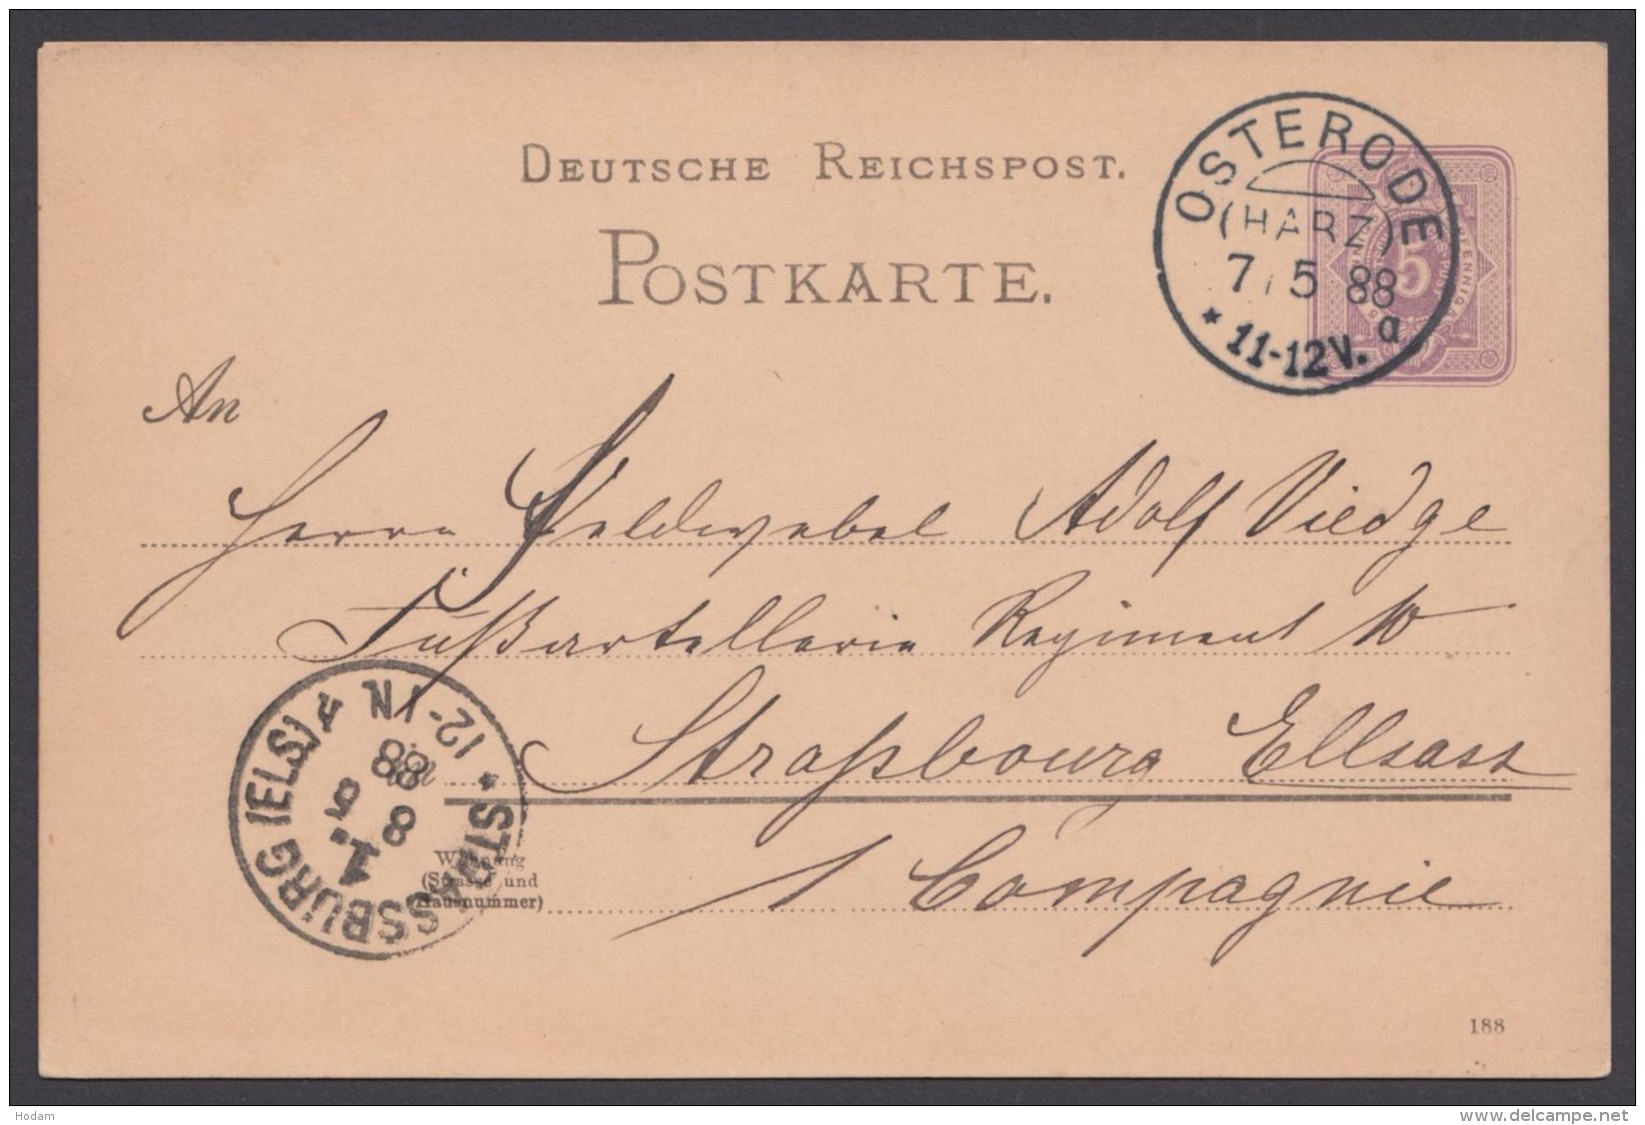 DEUTSCHE REICHSPOST.
POSTKARTE.
OSTERODE
(HARZ)
7 5 88
a
* 11-12V.
5
PFENNIG
An
Herrn Feldwebel Adolf Viedge
Fußartellerie Regiment 10
Straßbourg Ellsass
1 Compagnie
in
Wohnung
(Strasse und
Hausnummer)
* STRASSBURG (ELS) 4
12-1N
88
8 5
1.
188
Hodam
www.delcampe.net